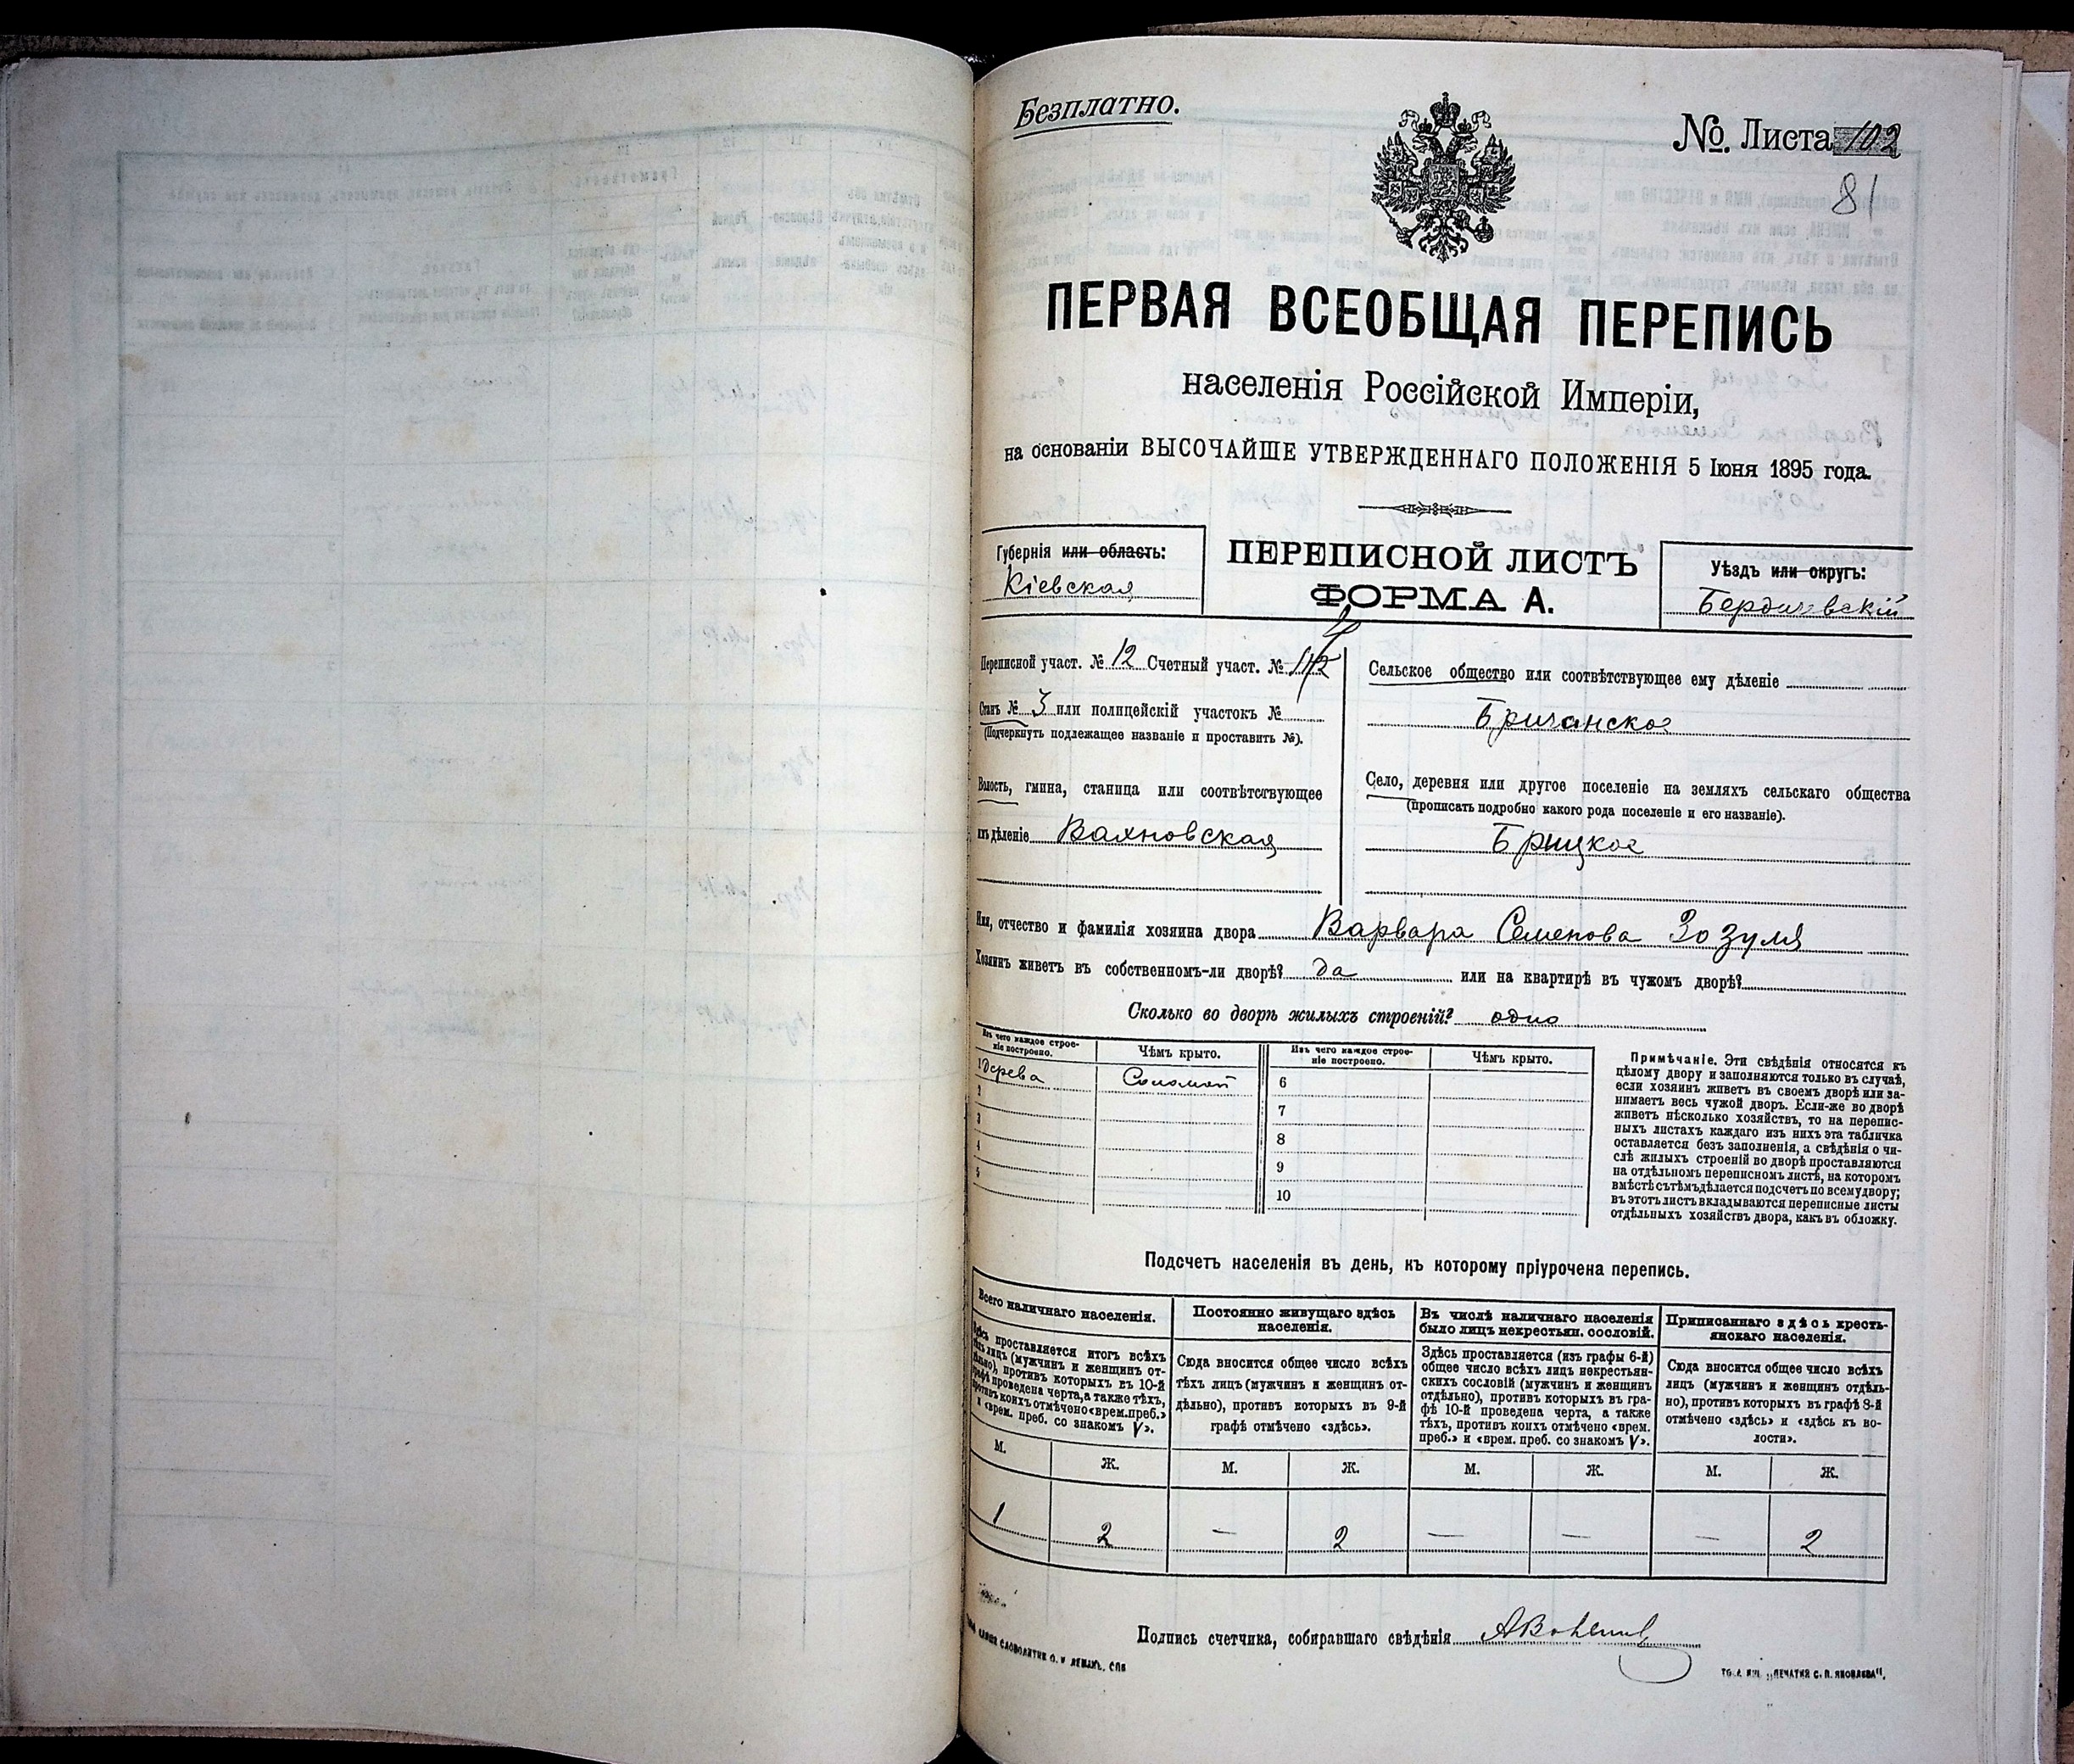 Безплатно.
№. Листа 102
81
ПЕРВАЯ ВСЕОБЩАЯ ПЕРЕПИСЬ
населенія Россійской Имперіи,
на основаніи ВЫСОЧАЙШЕ УТВЕРЖДЕННАГО ПОЛОЖЕНІЯ 5 Іюня 1895 года.
Губернія или область:
Кіевская
ПЕРЕПИСНОЙ ЛИСТЪ
ФОРМА А.
Уѣздъ или округъ:
Бердичевскій
Переписной участ. № 12 Счетный участ. №
Станъ № 3 или полицейскій участокъ №
(Подчеркнуть подлежащее названіе и проставить №).
Волость, гмина, станица или соотвѣтствующее
имъ дѣленіе Вахновская
Сельское общество или соотвѣтствующее ему дѣленіе
Бричанское
Село, деревня или другое поселеніе на земляхъ сельскаго общества
(прописать подробно какого рода поселеніе и его названіе).
Брицкое
Имя, отчество и фамилія хозяина двора Варвара Семенова Зозуля
Хозяинъ живетъ въ собственномъ-ли дворѣ? да или на квартирѣ въ чужомъ дворѣ?
Сколько во дворѣ жилыхъ строеній? одно
Изъ чего каждое строе-
ніе построено.
Чѣмъ крыто.
Изъ чего каждое строе-
ніе построено.
Чѣмъ крыто.
1 Дерева Соломой 6
2 7
3 8
4 9
5 10
Примѣчаніе. Эти свѣдѣнія относятся къ
цѣлому двору и заполняются только въ случаѣ,
если хозяинъ живетъ въ своемъ дворѣ или за-
нимаетъ весь чужой дворъ. Если-же во дворѣ
живетъ нѣсколько хозяйствъ, то на перепис-
ныхъ листахъ каждаго изъ нихъ эта табличка
оставляется безъ заполненія, а свѣдѣнія о чи-
слѣ жилыхъ строеній во дворѣ проставляются
на отдѣльномъ переписномъ листѣ, на которомъ
вмѣстѣ съ тѣмъ дѣлается подсчетъ по всему двору;
въ этотъ листъ вкладываются переписные листы
отдѣльныхъ хозяйствъ двора, какъ въ обложку.
Подсчетъ населенія въ день, къ которому пріурочена перепись.
Всего наличнаго населенія.
Здѣсь проставляется итогъ всѣхъ
тѣхъ лицъ (мужчинъ и женщинъ от-
дѣльно), противъ которыхъ въ 10-й
графѣ проведена черта, а также тѣхъ,
противъ коихъ отмѣчено «врем. преб.»
и «врем. преб. со знакомъ V».
Постоянно живущаго здѣсь
населенія.
Сюда вносится общее число всѣхъ
тѣхъ лицъ (мужчинъ и женщинъ от-
дѣльно), противъ которыхъ въ 9-й
графѣ отмѣчено «здѣсь».
Въ числѣ наличнаго населенія
было лицъ некрестьян. сословій.
Здѣсь проставляется (изъ графы 6-й)
общее число всѣхъ лицъ некрестьян-
скихъ сословій (мужчинъ и женщинъ
отдѣльно), противъ которыхъ въ гра-
фѣ 10-й проведена черта, а также
тѣхъ, противъ коихъ отмѣчено «врем.
преб.» и «врем. преб. со знакомъ V».
Приписаннаго здѣсь кресть-
янскаго населенія.
Сюда вносится общее число всѣхъ
лицъ (мужчинъ и женщинъ отдѣль-
но), противъ которыхъ въ графѣ 8-й
отмѣчено «здѣсь» и «здѣсь къ во-
лости».
М. Ж. М. Ж. М. Ж. М. Ж.
1 2 — 2 — — — 2
Подпись счетчика, собиравшаго свѣдѣнія
СЛОВОЛИТНИ О. И. ЛЕМАНЪ, СПБ
„ПЕЧАТНЯ С. П. ЯКОВЛЕВА“.